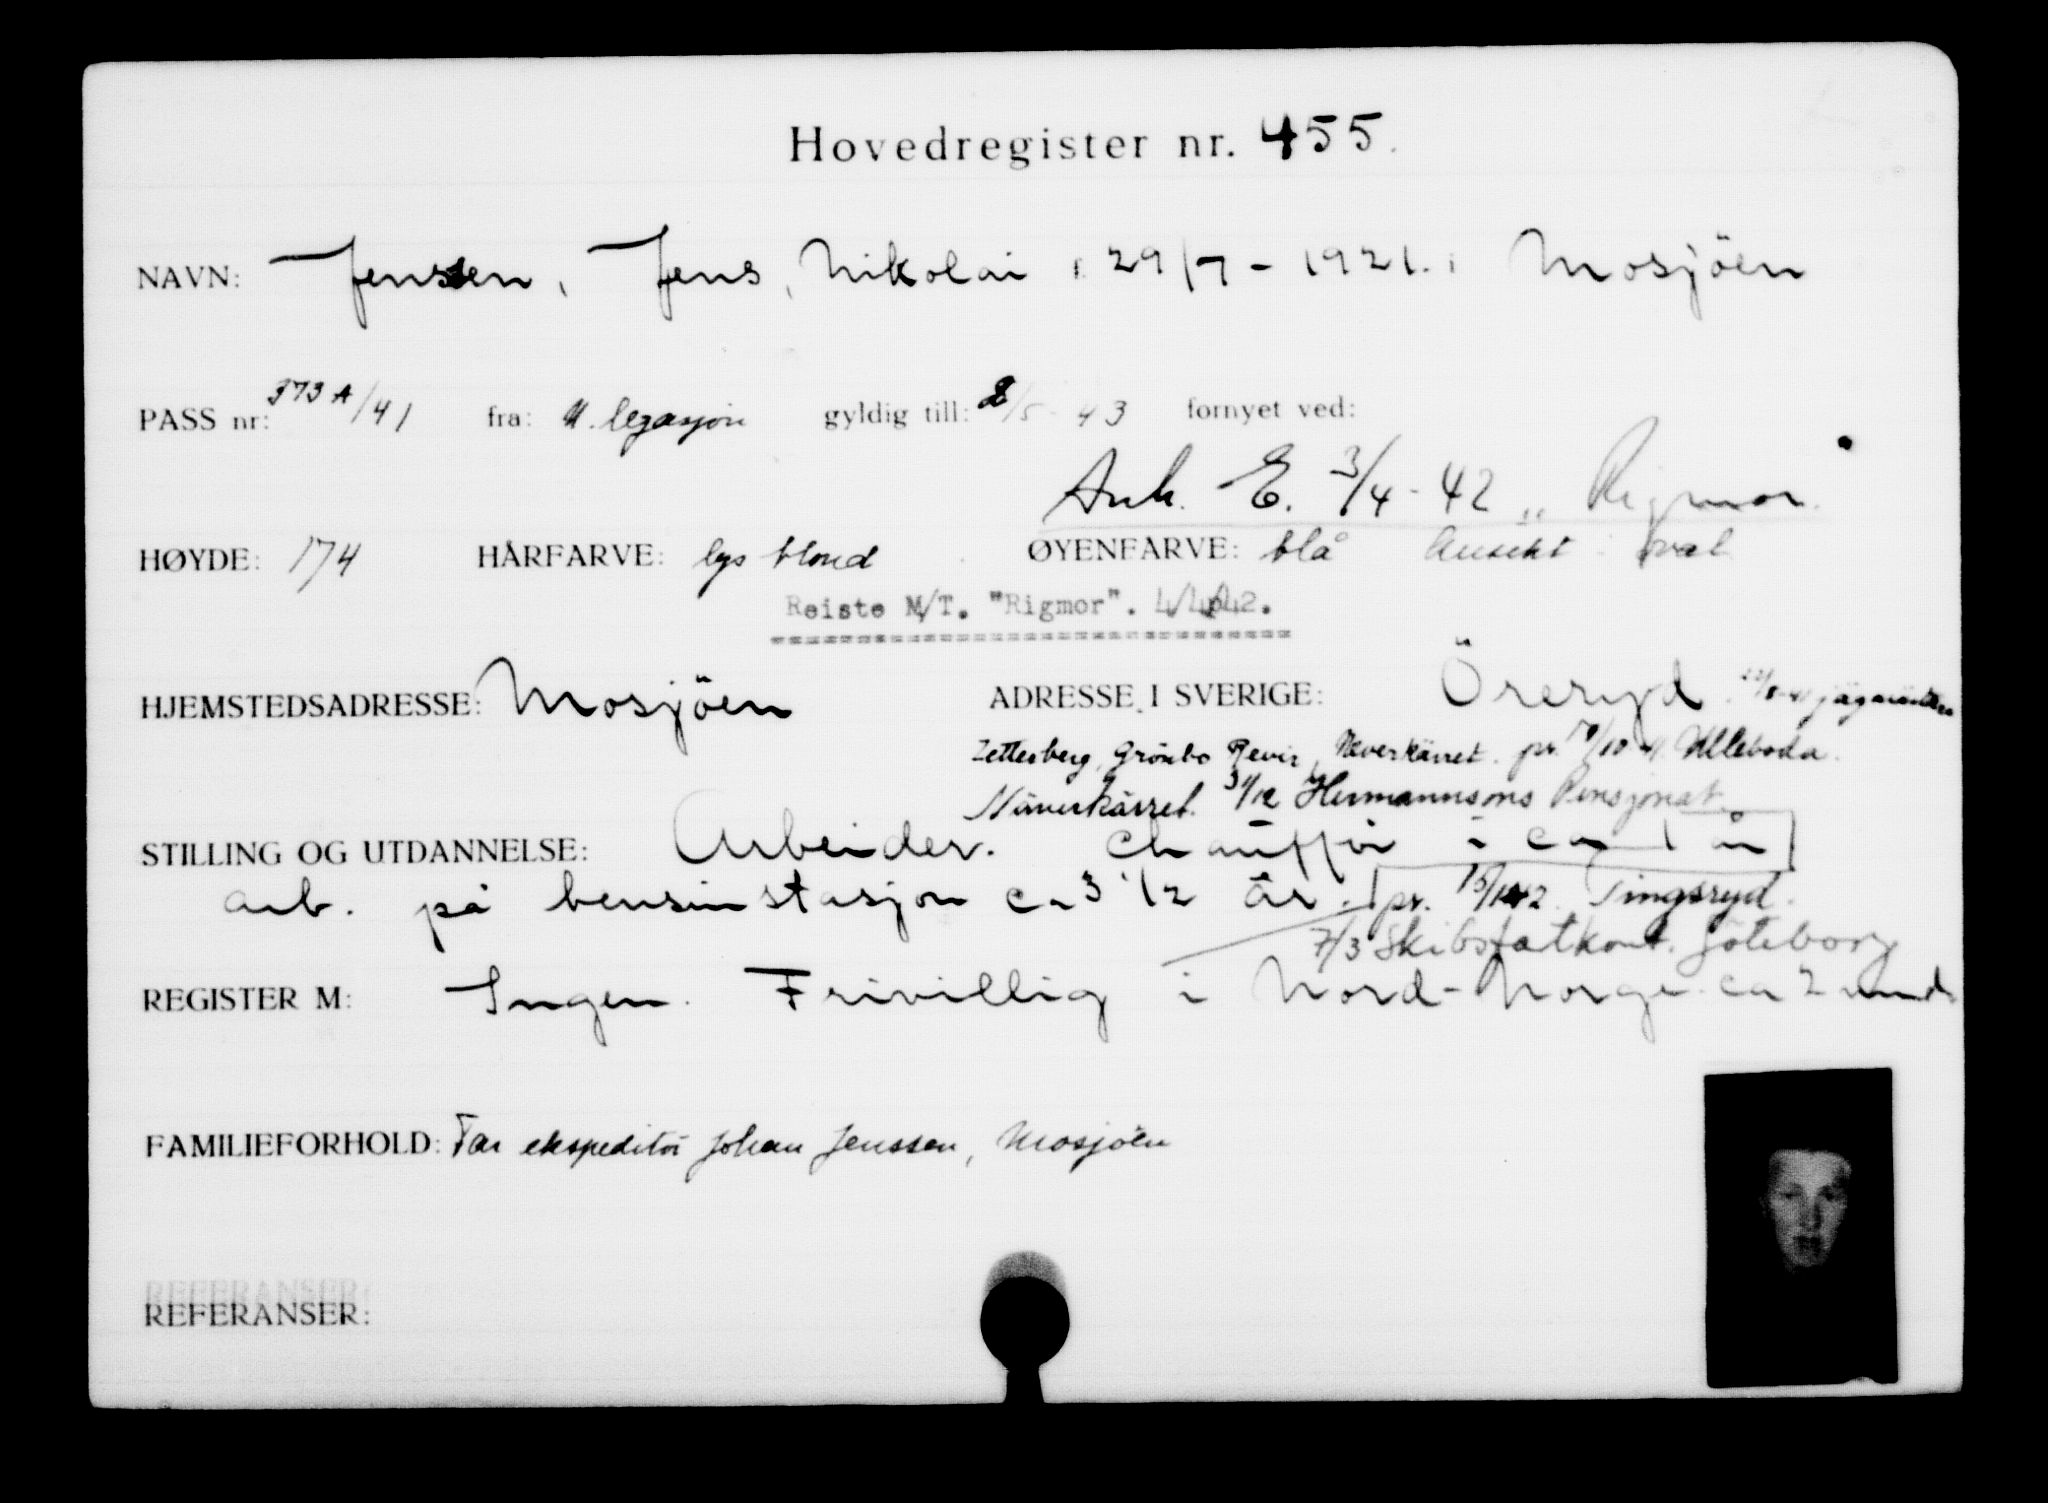 Hovedregister nr. 455.
NAVN: Jenssen, Jens, Nikolai, 29/7-1921. i Mosjöen
PASS nr: 373 A/41 fra: N. legasjon gyldig till: 8/5-43 fornyet ved:
Ank. E. 3/4-42 „ Rigmor.
HØYDE: 174 HÅRFARVE: lys blond ØYENFARVE: blå Ansikt: oval
Reiste M/T. "Rigmor". 4/4-42.
HJEMSTEDSADRESSE: Mosjöen ADRESSE I SVERIGE: Öreryd. /8-41 jägmästare
Zetterberg, Grönbo Revir, Näverkärret. pr. /10 41 Ulleboda.
Näverkärret. 31/12 Hermannsons Pensjonat
STILLING OG UTDANNELSE: Arbeider. Chauffør i ca 1 år
arb. på bensinstasjon ca 3 1/2 år. pr. 15/1 42. Tingsryd.
7/3 Skibsfartkont. Göteborg
REGISTER M: Ingen. Frivillig i Nord-Norge ca 2 mnd.
FAMILIEFORHOLD: Far ekspeditør Johan Jenssen, Mosjöen
REFERANSER: